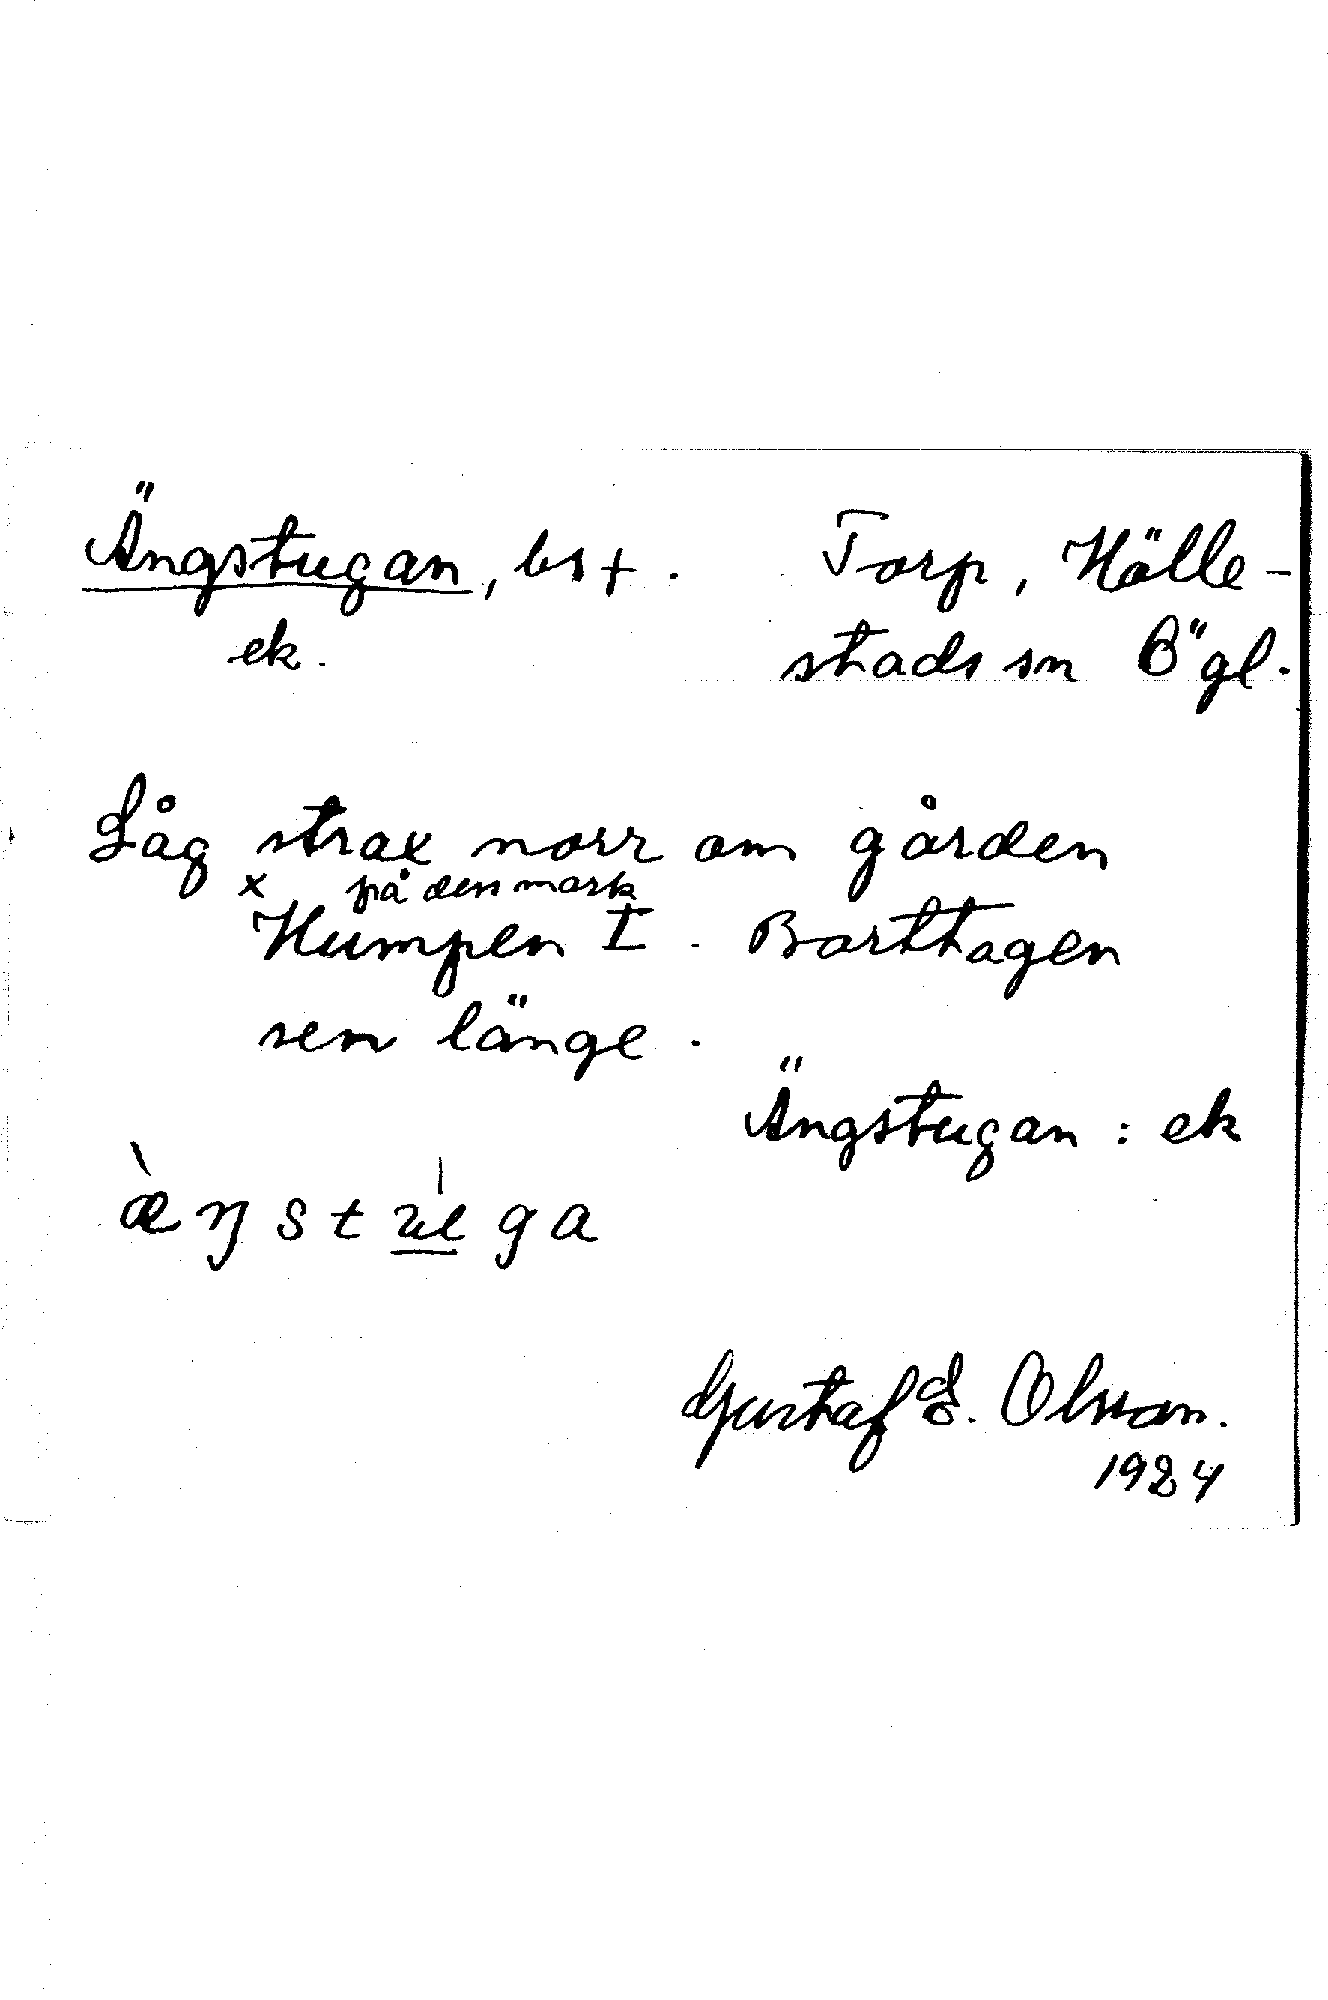 Ängstugan, bs +.
Torp, Hälle-
ek.
stads sn Ögl.
Låg strax norr om gården
x på den mark
Humpen I. Borttagen
sen länge.
Ängstugan: ek
æ̀ŋstu̲ga
Gustaf E. Olsson.
1924